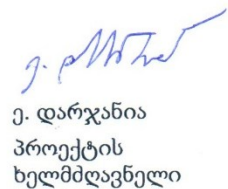 ე. დარჯანია
პროექტის
ხელმძღავნელი